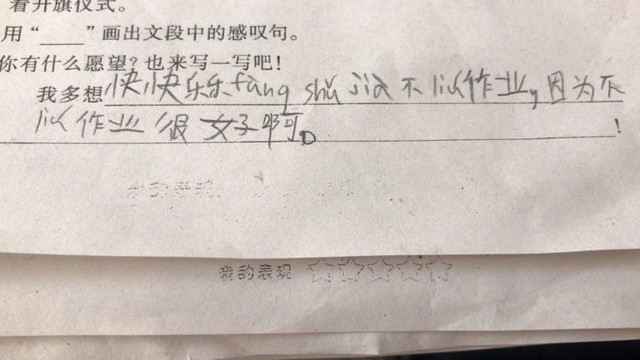 看升旗仪式。
用“____”画出文段中的感叹句。
你有什么愿望?也来写一写吧!
我多想快快乐乐fàng shǔ jià不以作业,因为不
以作业很好啊。!
我的表现
我的表现 ☆☆☆☆☆